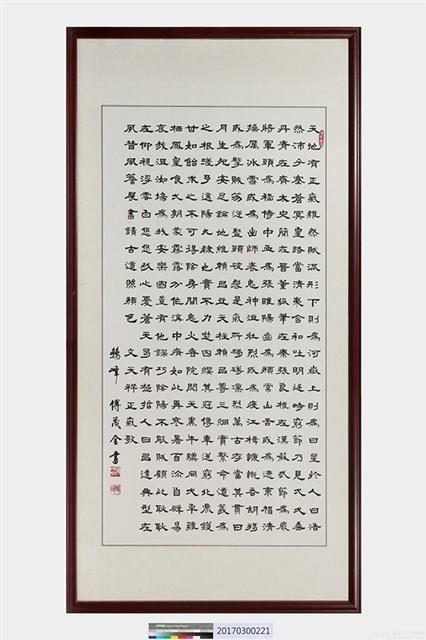 天地有正氣雜然賦流形下則為河嶽上則為日星於人曰浩
然沛乎塞蒼冥皇路當清夷含和吐明廷時窮節乃見弌弌垂
丹青在齊太史簡在晉董狐筆在秦張良椎在漢蘇武節為嚴
將軍頭為嵇侍中血為張睢陽齒為顏常山舌或為遼東帽清
操厲冰雪或為出師表鬼神泣壯烈或為渡江楫慷慨吞胡羯
或為擊賊笏逆豎頭破裂是氣所磅礡凜烈萬古存當其貫日
月生死安足論地維賴以立天柱賴以尊三綱實繫命道義為
之根嗟予遘陽九隸也實不力楚囚纓其冠傳車送窮北鼎鑊
甘如飴求之不可得陰房闃鬼火春院閟天黑牛驥同弌皁雞
栖鳳皇食弌朝蒙霧露分作溝中瘠如此再寒暑百沴自辟易
哀哉沮洳場為我安樂國豈有他繆巧陰陽不能賊顧此耿耿
在仰視浮雲白悠悠我心憂蒼天曷有極哲人日已遠典型在
夙昔風簷展書讀古道照顏色 文天祥正氣歌
峰 傅茂金書
20170300221